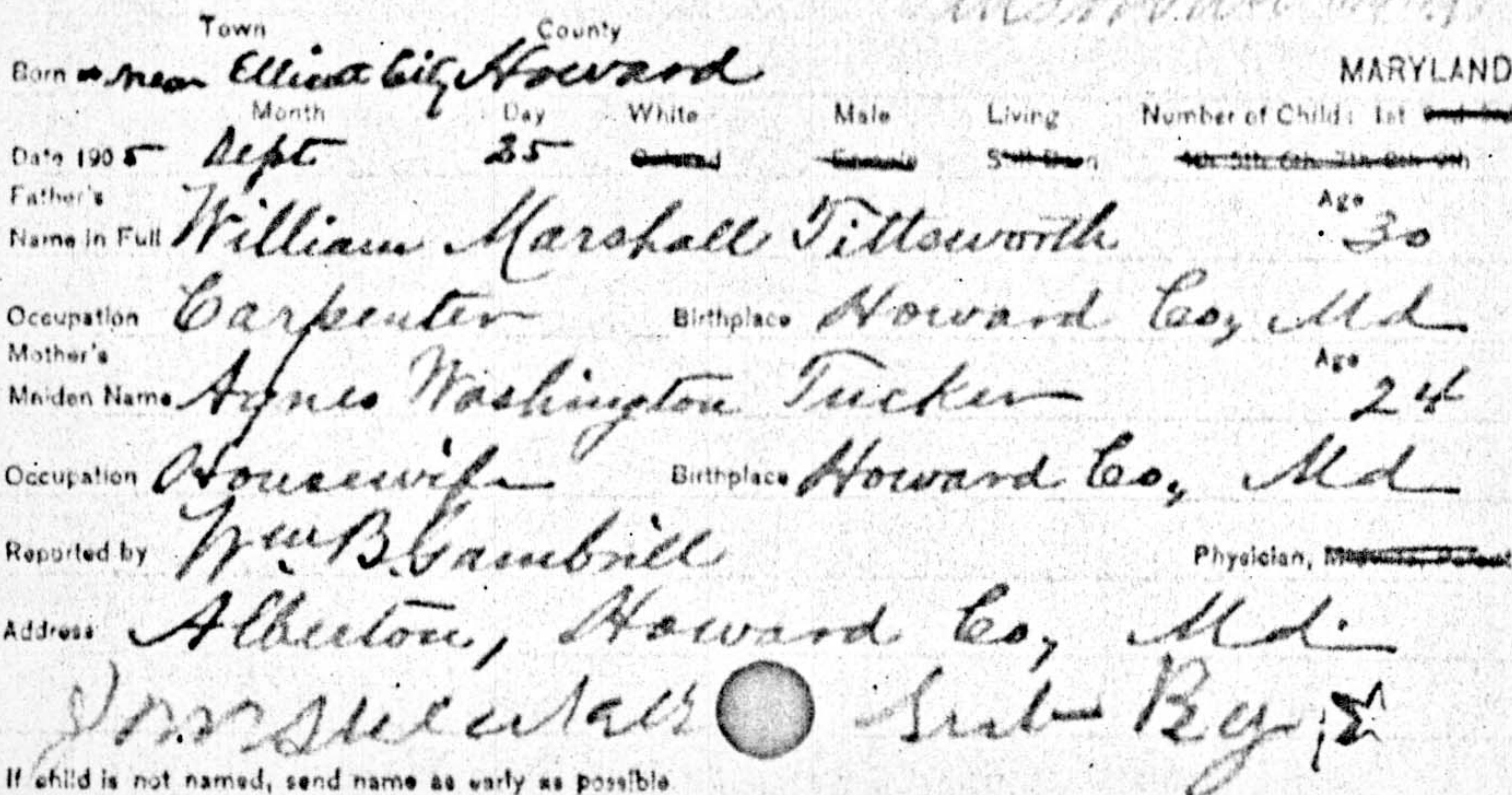 Town County
Born near Ellicott City Howard MARYLAND
Month Day White Male Living Number of Child: 1st 2nd 3rd
Date 1905 Sept 25 Colored Female Still Born 4th 5th 6th 7th 8th 9th
Father's Age
Name in Full William Marshall Tittsworth 30
Occupation Carpenter Birthplace Howard Co, Md
Mother's Age
Maiden Name Agnes Washington Tucker 24
Occupation Housewife Birthplace Howard Co, Md
Reported by Wm. B. Gambrill Physician, Midwife, Parent
Address Alberton, Howard Co, Md.
Sub Reg
If child is not named, send name as early as possible